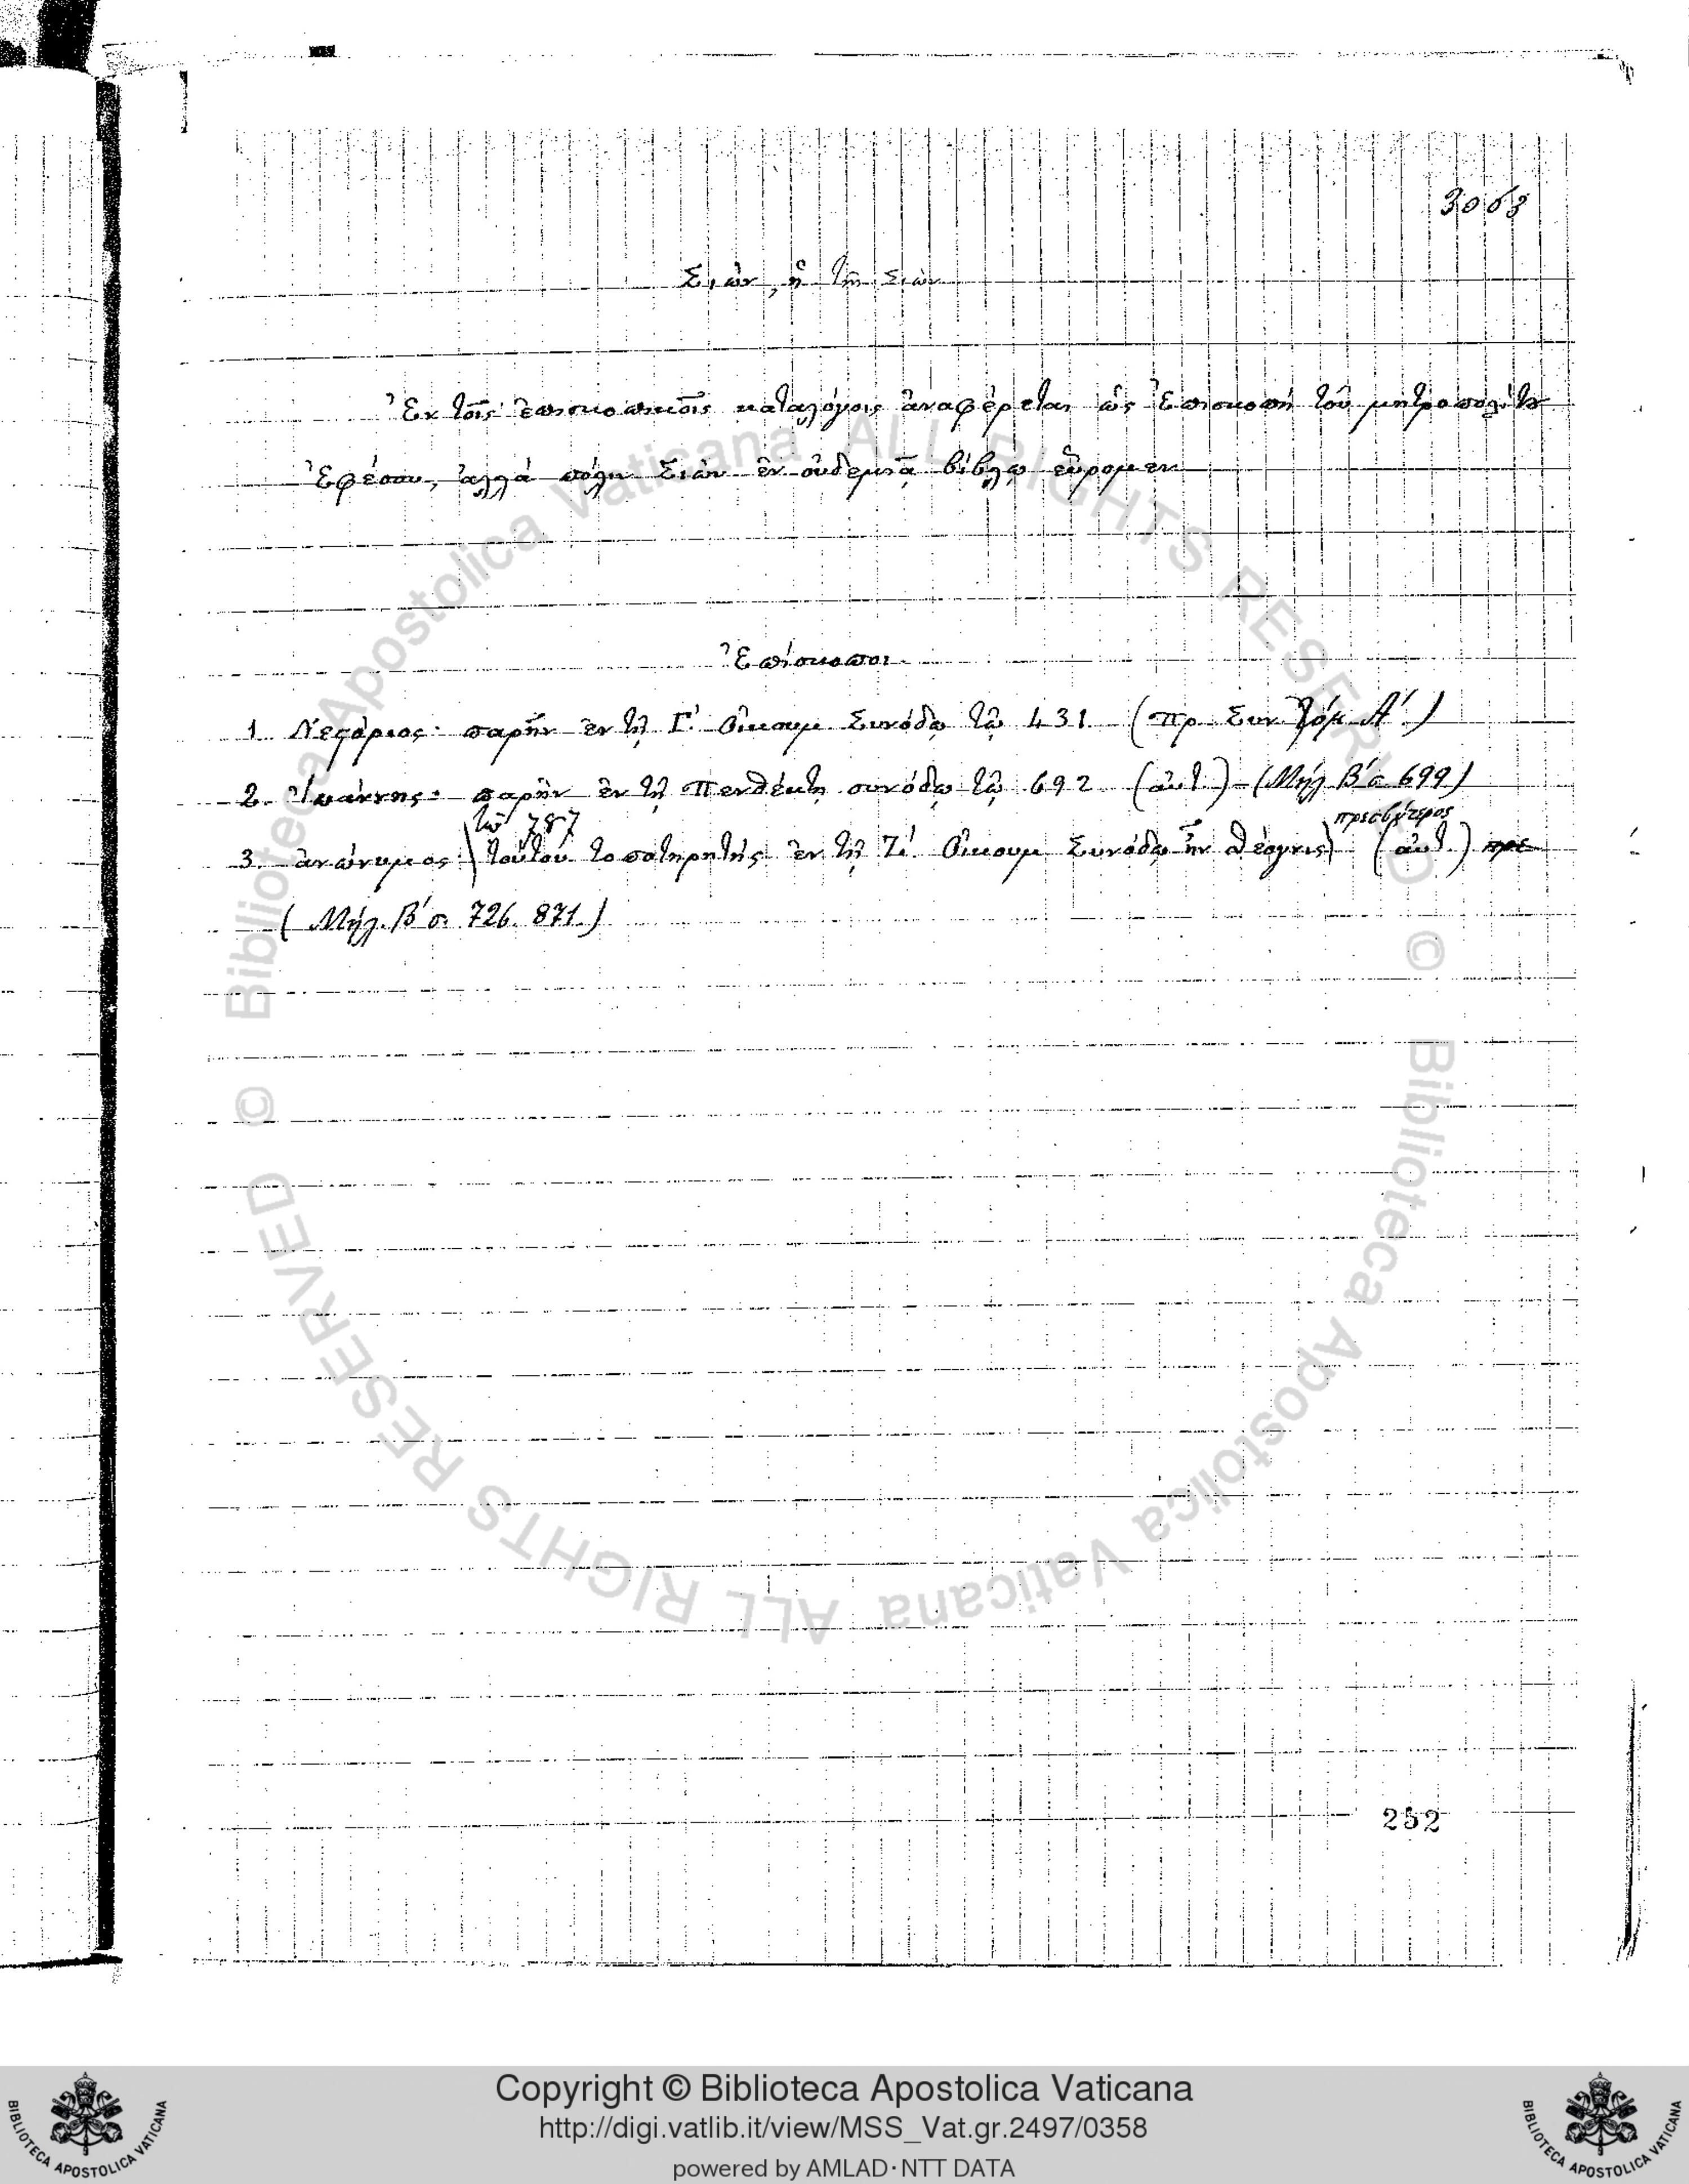 3063
Σιών, ἢ τὴν Σιὼν
Ἐν τοῖς ἐπισκοπικοῖς καταλόγοις ἀναφέρεται ὡς Ἐπισκοπὴ τοῦ μητροπολίτου
Ἐφέσου, ἀλλὰ πόλιν Σιὼν ἐν οὐδεμιᾷ βίβλῳ εὕρομεν
Ἐπίσκοποι
1. παρῆν ἐν τῇ Γʹ Οἰκουμ Συνόδῳ τῷ 431 (Πρ. Συν. Τόμ. Αʹ.)
2. Ἰωάννης· παρῆν ἐν τῇ Πενθέκτῃ συνόδῳ τῷ 692 (αὐτ.) - (Μήλ. Βʹ σ. 699)
τῷ 787 πρεσβύτερος
3. ἀνώνυμος· τούτου τοποτηρητής ἐν τῇ Ζʹ Οἰκουμ Συνόδῳ ἦν Θέογνις (αὐτ.) πρε
(Μήλ. Βʹ σ. 726. 871.)
252
Copyright © Biblioteca Apostolica Vaticana
http://digi.vatlib.it/view/MSS_Vat.gr.2497/0358
powered by AMLAD·NTT DATA
BIBLIOTECA APOSTOLICA VATICANA
BIBLIOTECA APOSTOLICA VATICANA
© Biblioteca Apostolica Vaticana ALL RIGHTS RESERVED
© Biblioteca Apostolica Vaticana ALL RIGHTS RESERVED